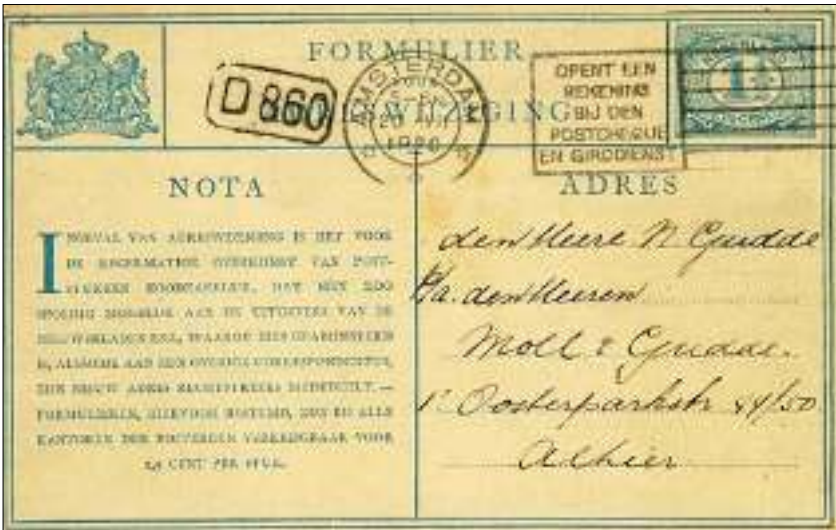 FORMULIER
D 860
AMSTERDAM
1920
OPENT EEN
REKENING
BIJ DEN
POSTCHEQUE
EN GIRODIENST
NOTA
INGEVAL VAN ADRESWIJZIGING IS HET VOOR
DE REGELMATIGE OVERKOMST VAN POST-
STUKKEN NOODZAKELIJK, DAT MEN ZOO
SPOEDIG MOGELIJK AAN DE UITGEVERS VAN DE
NIEUWSBLADEN ENZ., WAAROP MEN GEABONNEERD
IS, ALSMEDE AAN ZIJN OVERIGE CORRESPONDENTEN,
ZIJN NIEUW ADRES RECHTSTREEKS MEDEDEELT. —
FORMULIEREN, HIERVOOR BESTEMD, ZIJN BIJ ALLE
KANTOREN DER POSTERIJEN VERKRIJGBAAR VOOR
CENT PER STUK.
ADRES
den Heere N. Gudde
P/a. den Heeren
Moll & Gudde.
1e Oosterparkstr 44/50
Alhier